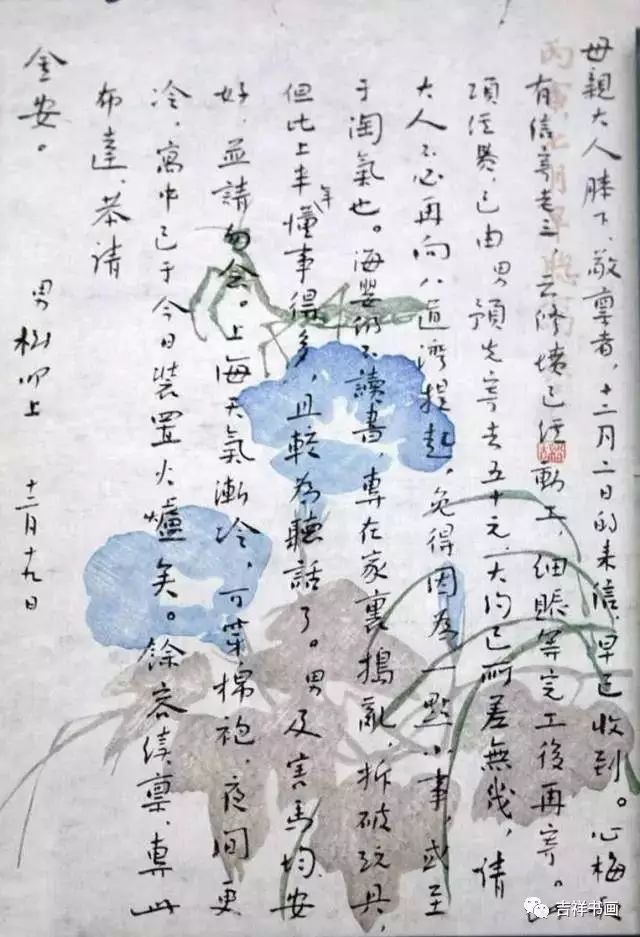 母親大人膝下,敬稟者,十二月二日的来信,早已收到。心梅叔
有信寄老三,云修墳已經動工,細賬等完工後再寄。此
項經費,已由男預先寄去五十元,大約已所差無幾,請
大人不必再向八道灣提起,免得因為一點小事,或至
于淘氣也。海嬰仍不讀書,專在家裏搗亂,拆破玩具,
但比上半年懂事得多,且較為聽話了。男及害馬均安
好,並請勿念。上海天氣漸冷,可穿棉袍,夜間更
冷,寓中已于今日裝置火爐矣。餘容續稟,專此
布達,恭請
金安。
男樹叩上 十二月十九日
吉祥书画